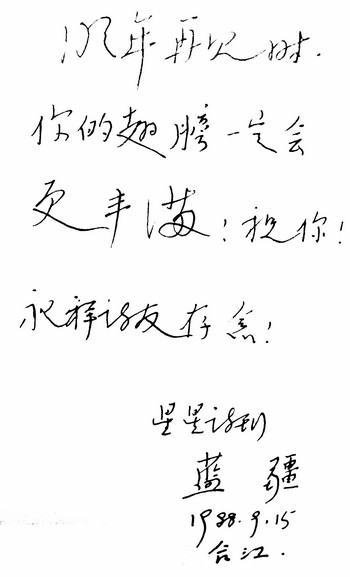 明年再见时.
你的翅膀一定会
更丰满！祝你！
永祥诗友存念！
星星诗刊
蓝疆
1988.9.15
合江.